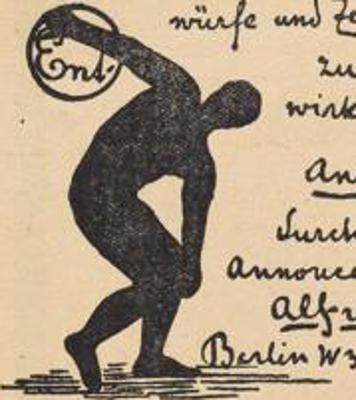 würfe und
Ent-
zu
wirk
An
durch
Annonce
Alfr
Berlin W 3